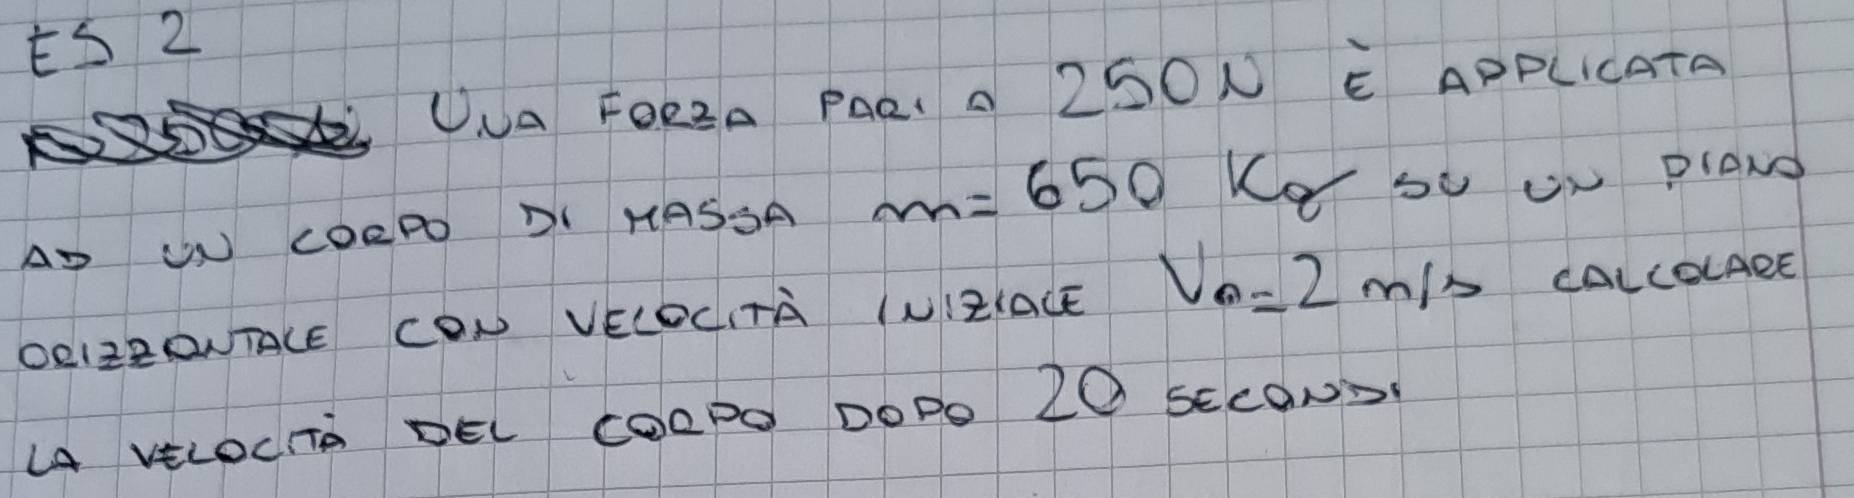 ES 2
UNA FORZA PARI A 250N È APPLICATA
AD UN CORPO DI MASSA m= 650 Kg SU UN PIANO
ORIZZONTALE CON VELOCITÀ INIZIALE V0=2 m/s CALCOLARE
LA VELOCITÀ DEL CORPO DOPO 20 SECONDI